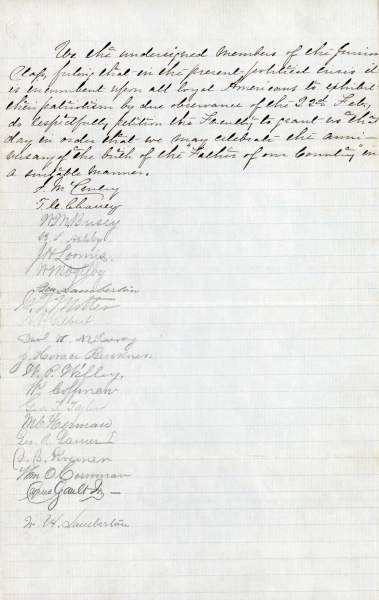 We the undersigned members of the Junior
Class, feeling that in the present political crisis it
is incumbent upon all loyal Americans to exhibit
their patriotism by due observance of the 22nd Feb,
do respectfully petition the Faculty to grant us this
day in order that we may celebrate the anni-
versary of the birth of the "Father of our Country" in
a suitable manner.
J. McCauley
T. C. Chaney
W. M. Busey
J. H. Loomis
Geo. Lamberton
Gilbert
Saml. W.
J. Horace
W. P. Willey.
Wm Coffman
Geo. T. Taylor
Geo. R.
D. B.
Wm. O. Cornman
Cyrus Gault Jr —
W. H. Lamberton